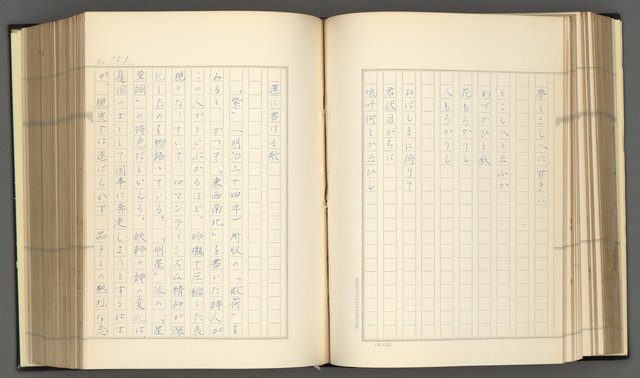 夢とこしへに甘きに
とこしへと云ふか
わづかひと秋
花もろかりし
人もろかりし
おばしまに倚りて
君伏目がちに
嗚呼何とか云ひし
蓮に書ける歌
「紫」(明治三十四年)所収の「敗荷」を
みると、かつて「東西南北」を書いた詩人が
この人かといぶかるほど、玲瓏で圧縮した表
現となっていて、ロマンティシズム精神が深
化したのを物語っている。「明星」派の「星
菫調」の特色だといえる。鉄幹の詩の変化は、
憂国の士として国事に奔走しようとする壮士
が、現実では遂げられず、晶子との熱烈な恋
No. 103